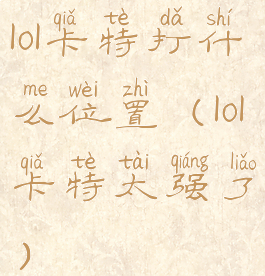 qiǎ tè dǎ shí
lol卡特打什
me wèi zhì
么位置(lol
qiǎ tè tài qiáng liǎo
卡特太强了
)